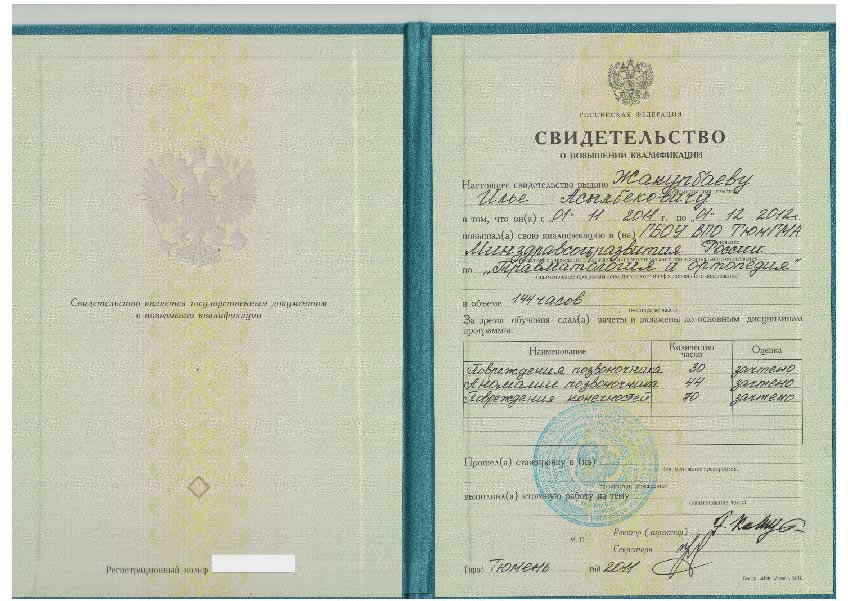 Свидетельство является государственным документом
о повышении квалификации
Регистрационный номер
РОССИЙСКАЯ ФЕДЕРАЦИЯ
СВИДЕТЕЛЬСТВО
О ПОВЫШЕНИИ КВАЛИФИКАЦИИ
Настоящее свидетельство выдано Жакупбаеву
Илье Асылбековичу
в том, что он(а) с 01 11 2011 г. по 01 12 2012 г.
повысил(а) свою квалификацию в (на) ГБОУ ВПО ТюмГМА
Минздравсоцразвития России
по „Травматология и ортопедия"
в объеме 144 часов
За время обучения сдал(а) зачеты и экзамены по основным дисциплинам
программы:
Наименование Количество часов Оценка
Повреждения позвоночника 30 зачтено
Аномалии позвоночника 44 зачтено
Повреждения конечностей 70 зачтено
Прошел(а) стажировку в (на)
выполнил(а) итоговую работу на тему
М. П.
Ректор (директор)
Секретарь
Город Тюмень год 2011